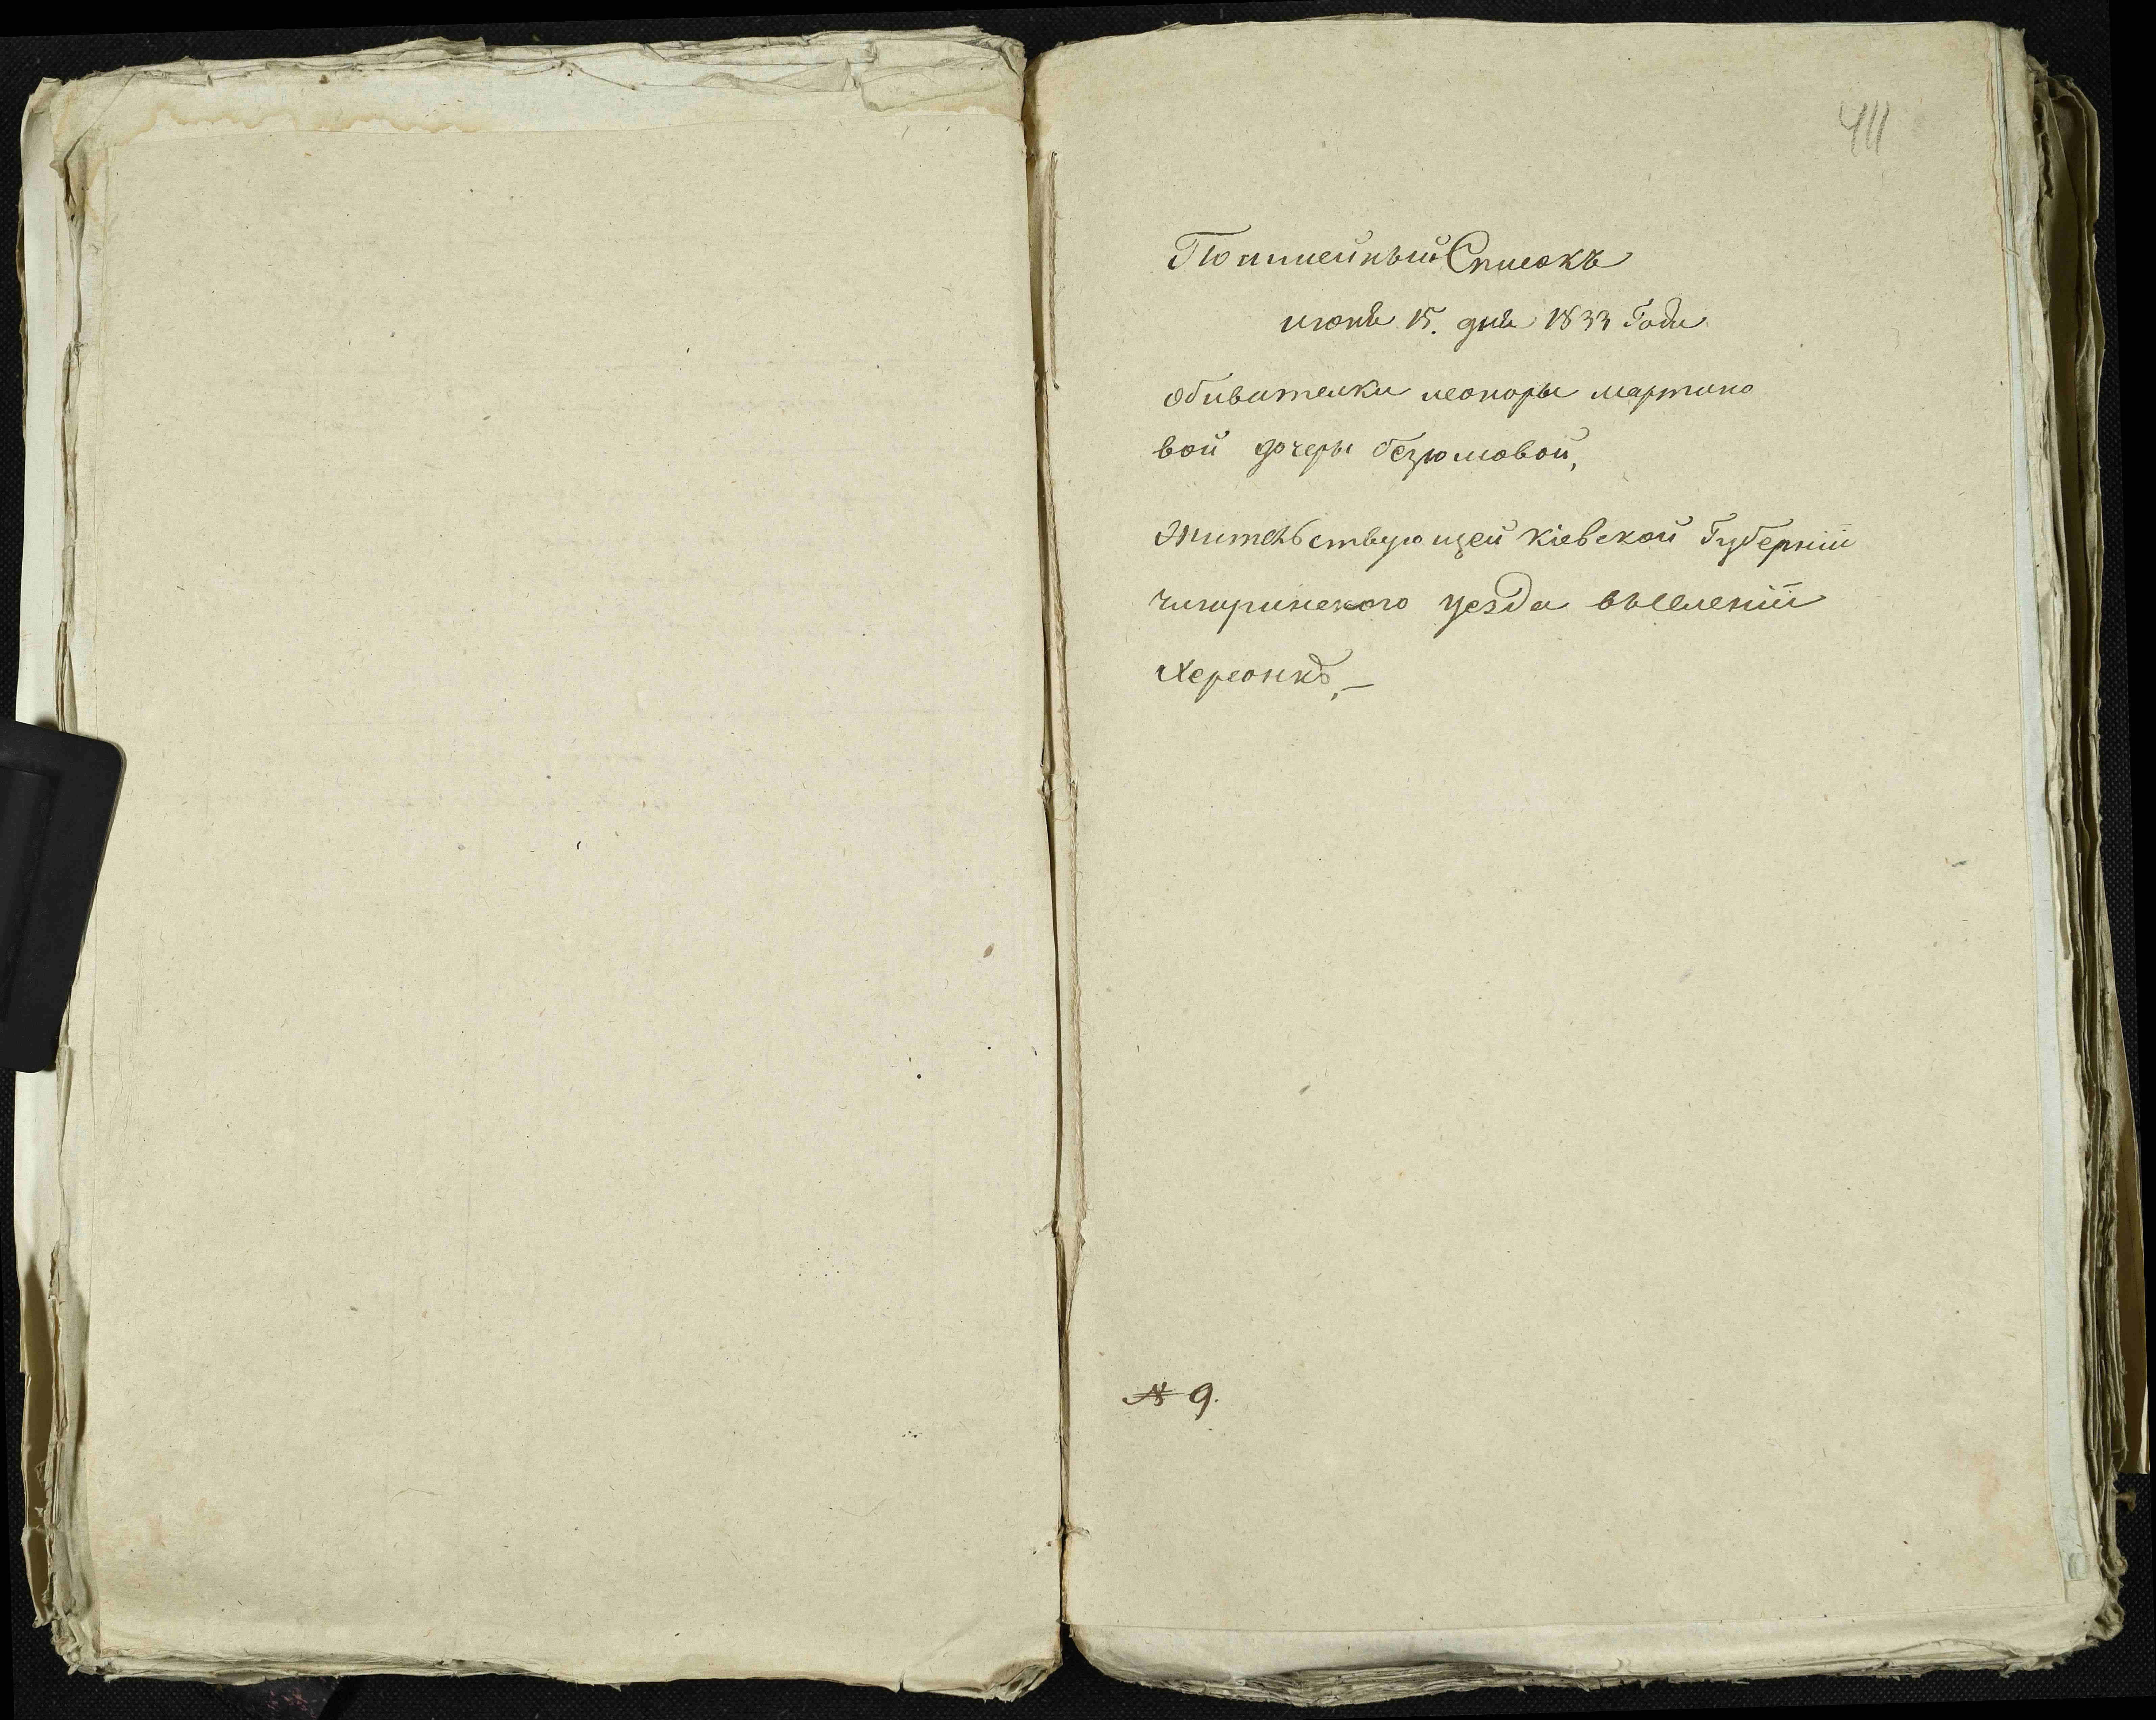 411
Поимменный Списокъ
июнь 15. днь 1833 Года
обивателки леоноры мартино
вой дочеры безюмовой,
Жительствующей Кіевской Губерніи
чигиринского уезда вьселеніи
Херсонкъ,—
№ 9.